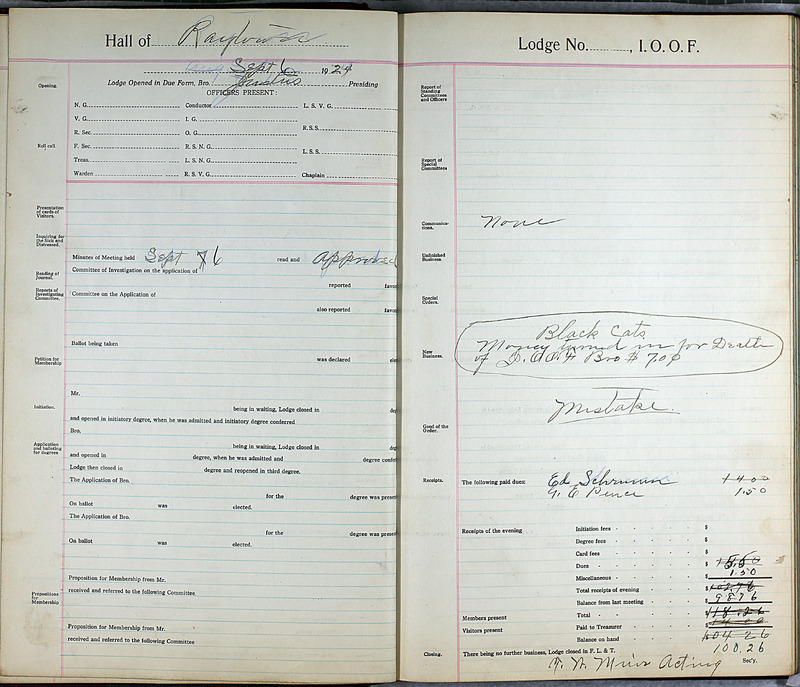 Hall of
Sept 6 1924
Opening.
Lodge Opened in Due Form, Bro. Presiding
OFFICERS PRESENT:
N. G. Conductor L. S. V. G.
V. G. I. G.
R. Sec. O. G. R.S.S.
Roll call.
F. Sec. R. S. N. G.
Treas. L. S. N. G. L.S.S.
Warden R. S. V. G. Chaplain
Presentation
of cards of
Visitors.
Inquiring for
the Sick and
Distressed.
Minutes of Meeting held Sept 6 read and approved
Reading of
Journal.
Committee of Investigation on the application of
reported favo
Reports of
Investigating
Committee.
Committee on the Application of
also reported favo
Ballot being taken
Petition for
Membership
was declared
Mr.
Initiation.
being in waiting, Lodge closed in deg
and opened in initiatory degree, when he was admitted and initiatory degree conferred
Bro.
Application
and balloting
for degrees
being in waiting, Lodge closed in deg
and opened in degree, when he was admitted and degree confe
Lodge then closed in degree and reopened in third degree.
The Application of Bro.
for the degree was presen
On ballot was elected.
The Application of Bro.
for the degree was presen
On ballot was elected.
Proposition for Membership from Mr.
Propositions
for
Membership
received and referred to the following Committee
Proposition for Membership from Mr.
received and referred to the following Committee
Lodge No. , I. O. O. F.
Report of
Standing
Committees
and Officers
Report of
Special
Committees
Communica-
tions.
None
Unfinished
Business.
Special
Orders.
New
Business.
Black Cats
Money turned in for Death
of I.O.O.F Bro $ 7.00
Mistake.
Good of the
Order.
Receipts.
The following paid dues: Ed 14.00
Pence 1.50
Receipts of the evening Initiation fees $
Degree fees $
Card fees $
Dues $ 15.50
1.50
Miscellaneous
Total receipts of evening $
Balance from last meeting 98.76
Members present Total $
Visitors present Paid to Treasurer
Balance on hand 104 26
100.26
Closing.
There being no further business, Lodge closed in F. L. & T.
Acting Sec'y.